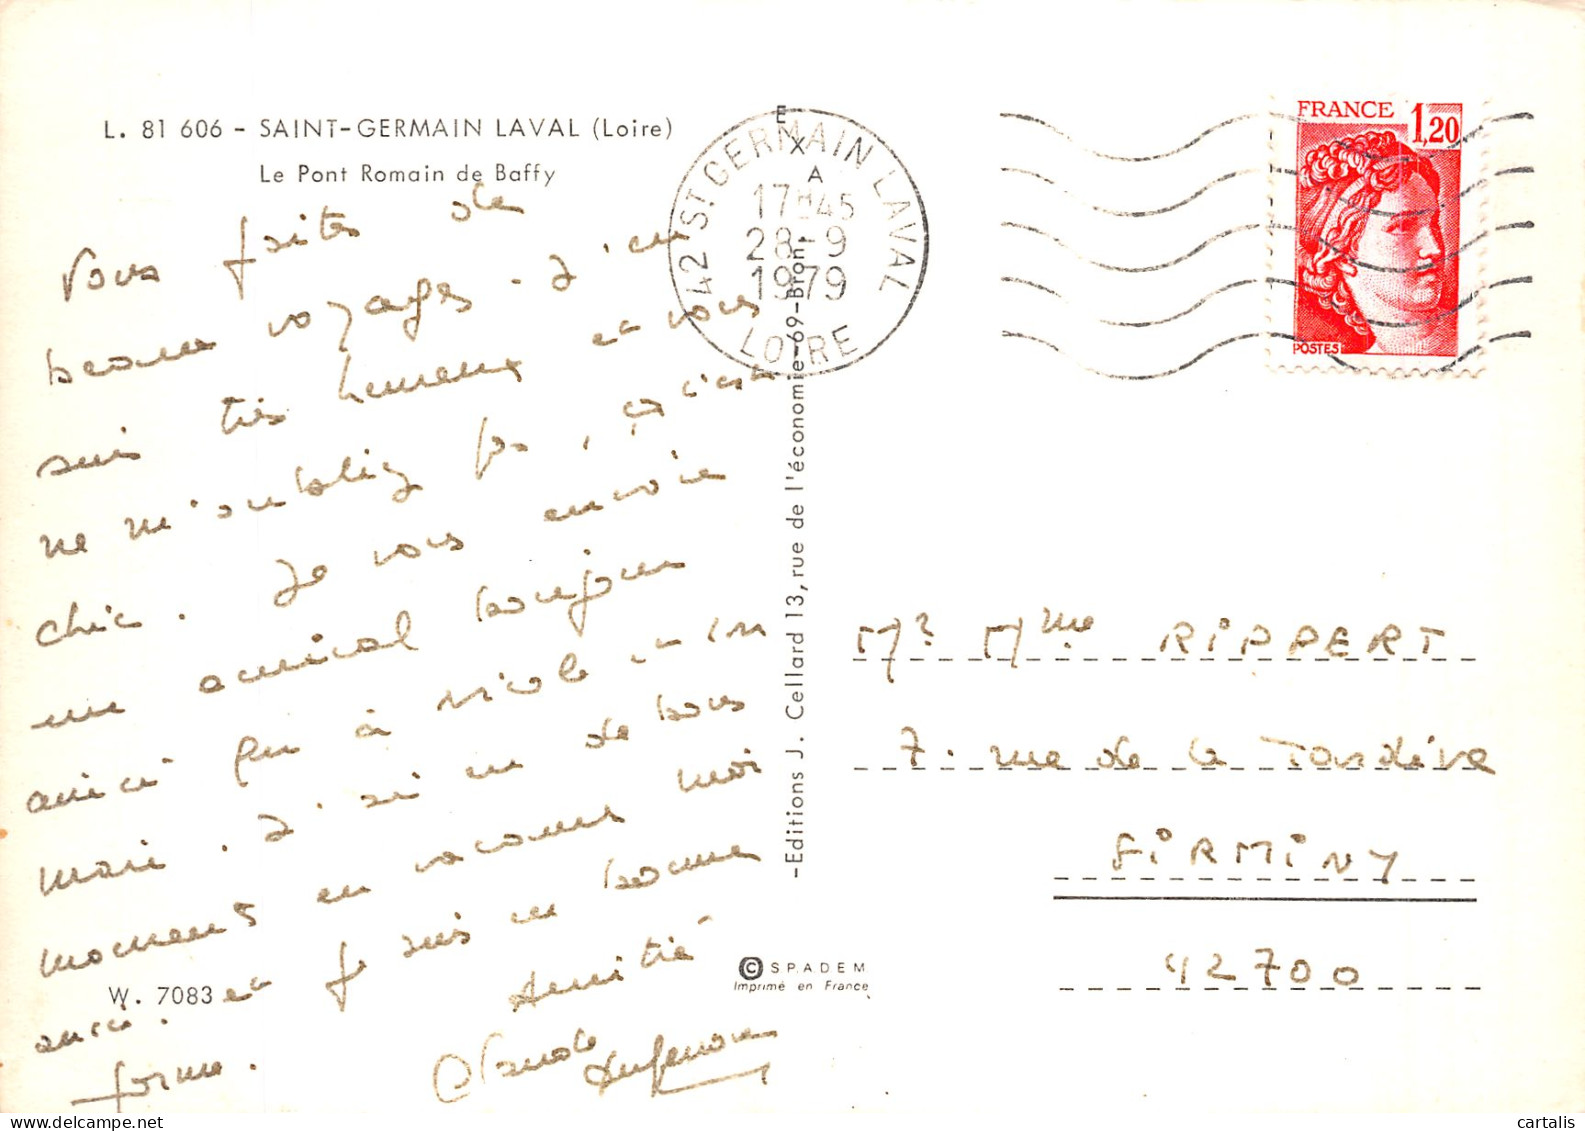 L. 81 606 - SAINT-GERMAIN LAVAL (Loire)
Le Pont Romain de Baffy
Vous faites de
beaux voyages. J'en
suis très heureux et vous
ne m'oubliez pas, ça c'est
chic. Je vous envoie
un amical bonjour
ainsi qu'à Nicole et son
mari. J'ai eu de bons
moments en vacances moi
aussi. et je suis en bonne
forme. Amitié
Claude
W. 7083
42 ST GERMAIN LAVAL
17H45
28-9
1979
LOIRE
EXA
-Editions J. Cellard 13, rue de l'économie-69-Bron-
© SPADEM
Imprimé en France
FRANCE 1,20
POSTES
Mr Mme RIPPERT
7. rue de la Tardive
FIRMINY
42700
cartalis.com